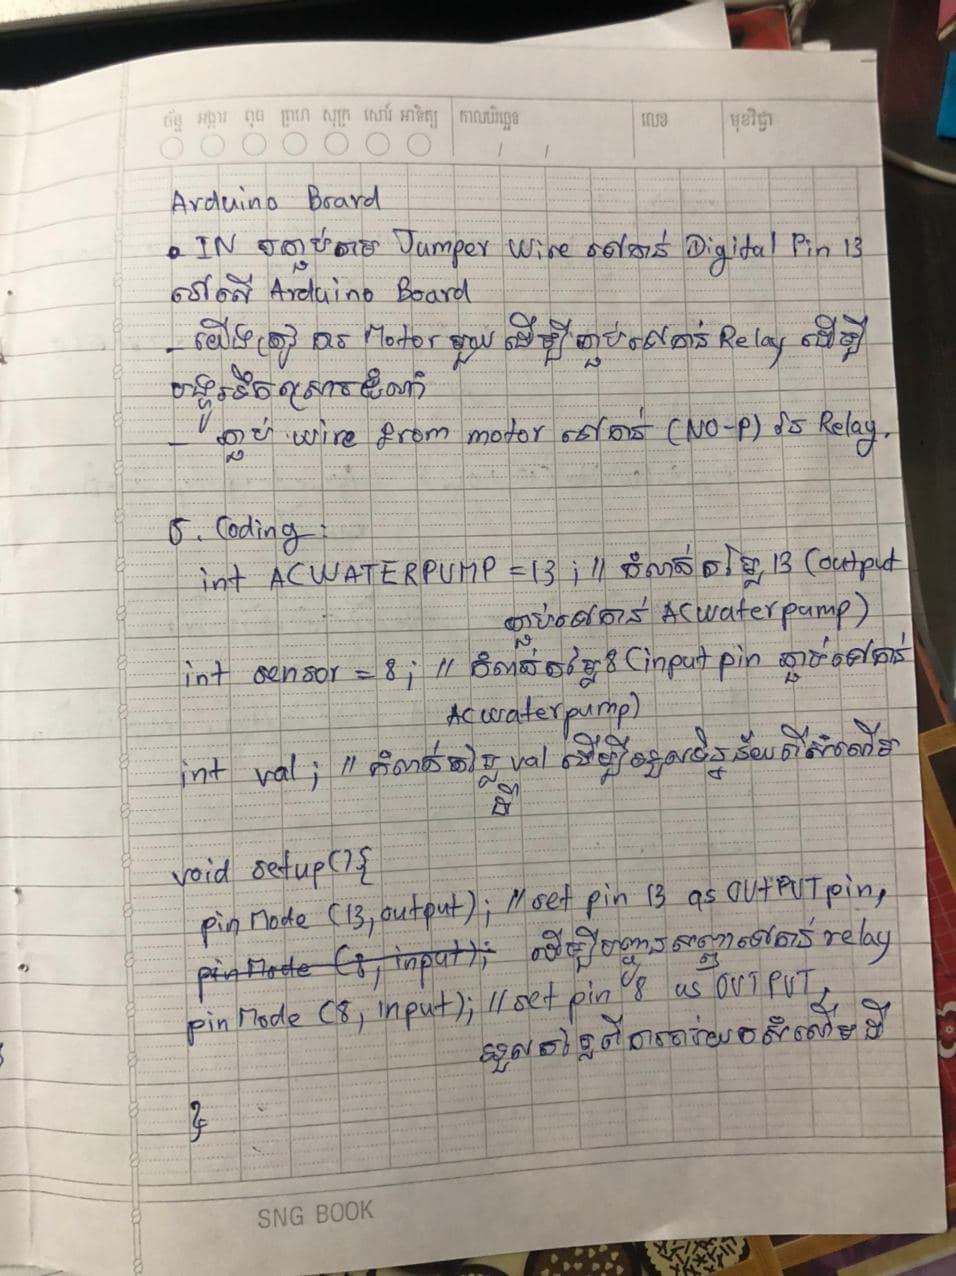 ច័ន្ទ អង្គារ ពុធ ព្រហ សុក្រ សៅរ៍ អាទិត្យ កាលបរិច្ឆេទ លេខ មុខវិជ្ជា
/ /
Arduino Board
• IN តភ្ជាប់តាម Jumper Wire ទៅកាន់ Digital Pin 13
នៅលើ Arduino Board
- យើងត្រូវការ Motor មួយ ដើម្បីភ្ជាប់ទៅកាន់ Relay ដើម្បី
បង្ហូរទឹកស្រោចដំណាំ
- ភ្ជាប់ wire from motor ទៅកាន់ (NO-P) នៃ Relay.
5. Coding :
int ACWATERPUMP = 13 ; // កំណត់តម្លៃ 13 (output
ភ្ជាប់ទៅកាន់ ACwaterpump)
int sensor = 8 ; // កំណត់តម្លៃ 8 (input pin ភ្ជាប់ទៅកាន់
ACwaterpump)
int val ; // កំណត់តម្លៃ val ដើម្បីទទួលទិន្នន័យពីសំណើម
ដី
void setup(){
pinMode (13,output); //set pin 13 as OUTPUT pin,
pinMode (8, input); ដើម្បីបញ្ជូនសញ្ញាទៅកាន់ relay
pinMode (8, input); //set pin 8 as OUTPUT,
ទទួលតម្លៃពី សំណើមដី
}
SNG BOOK